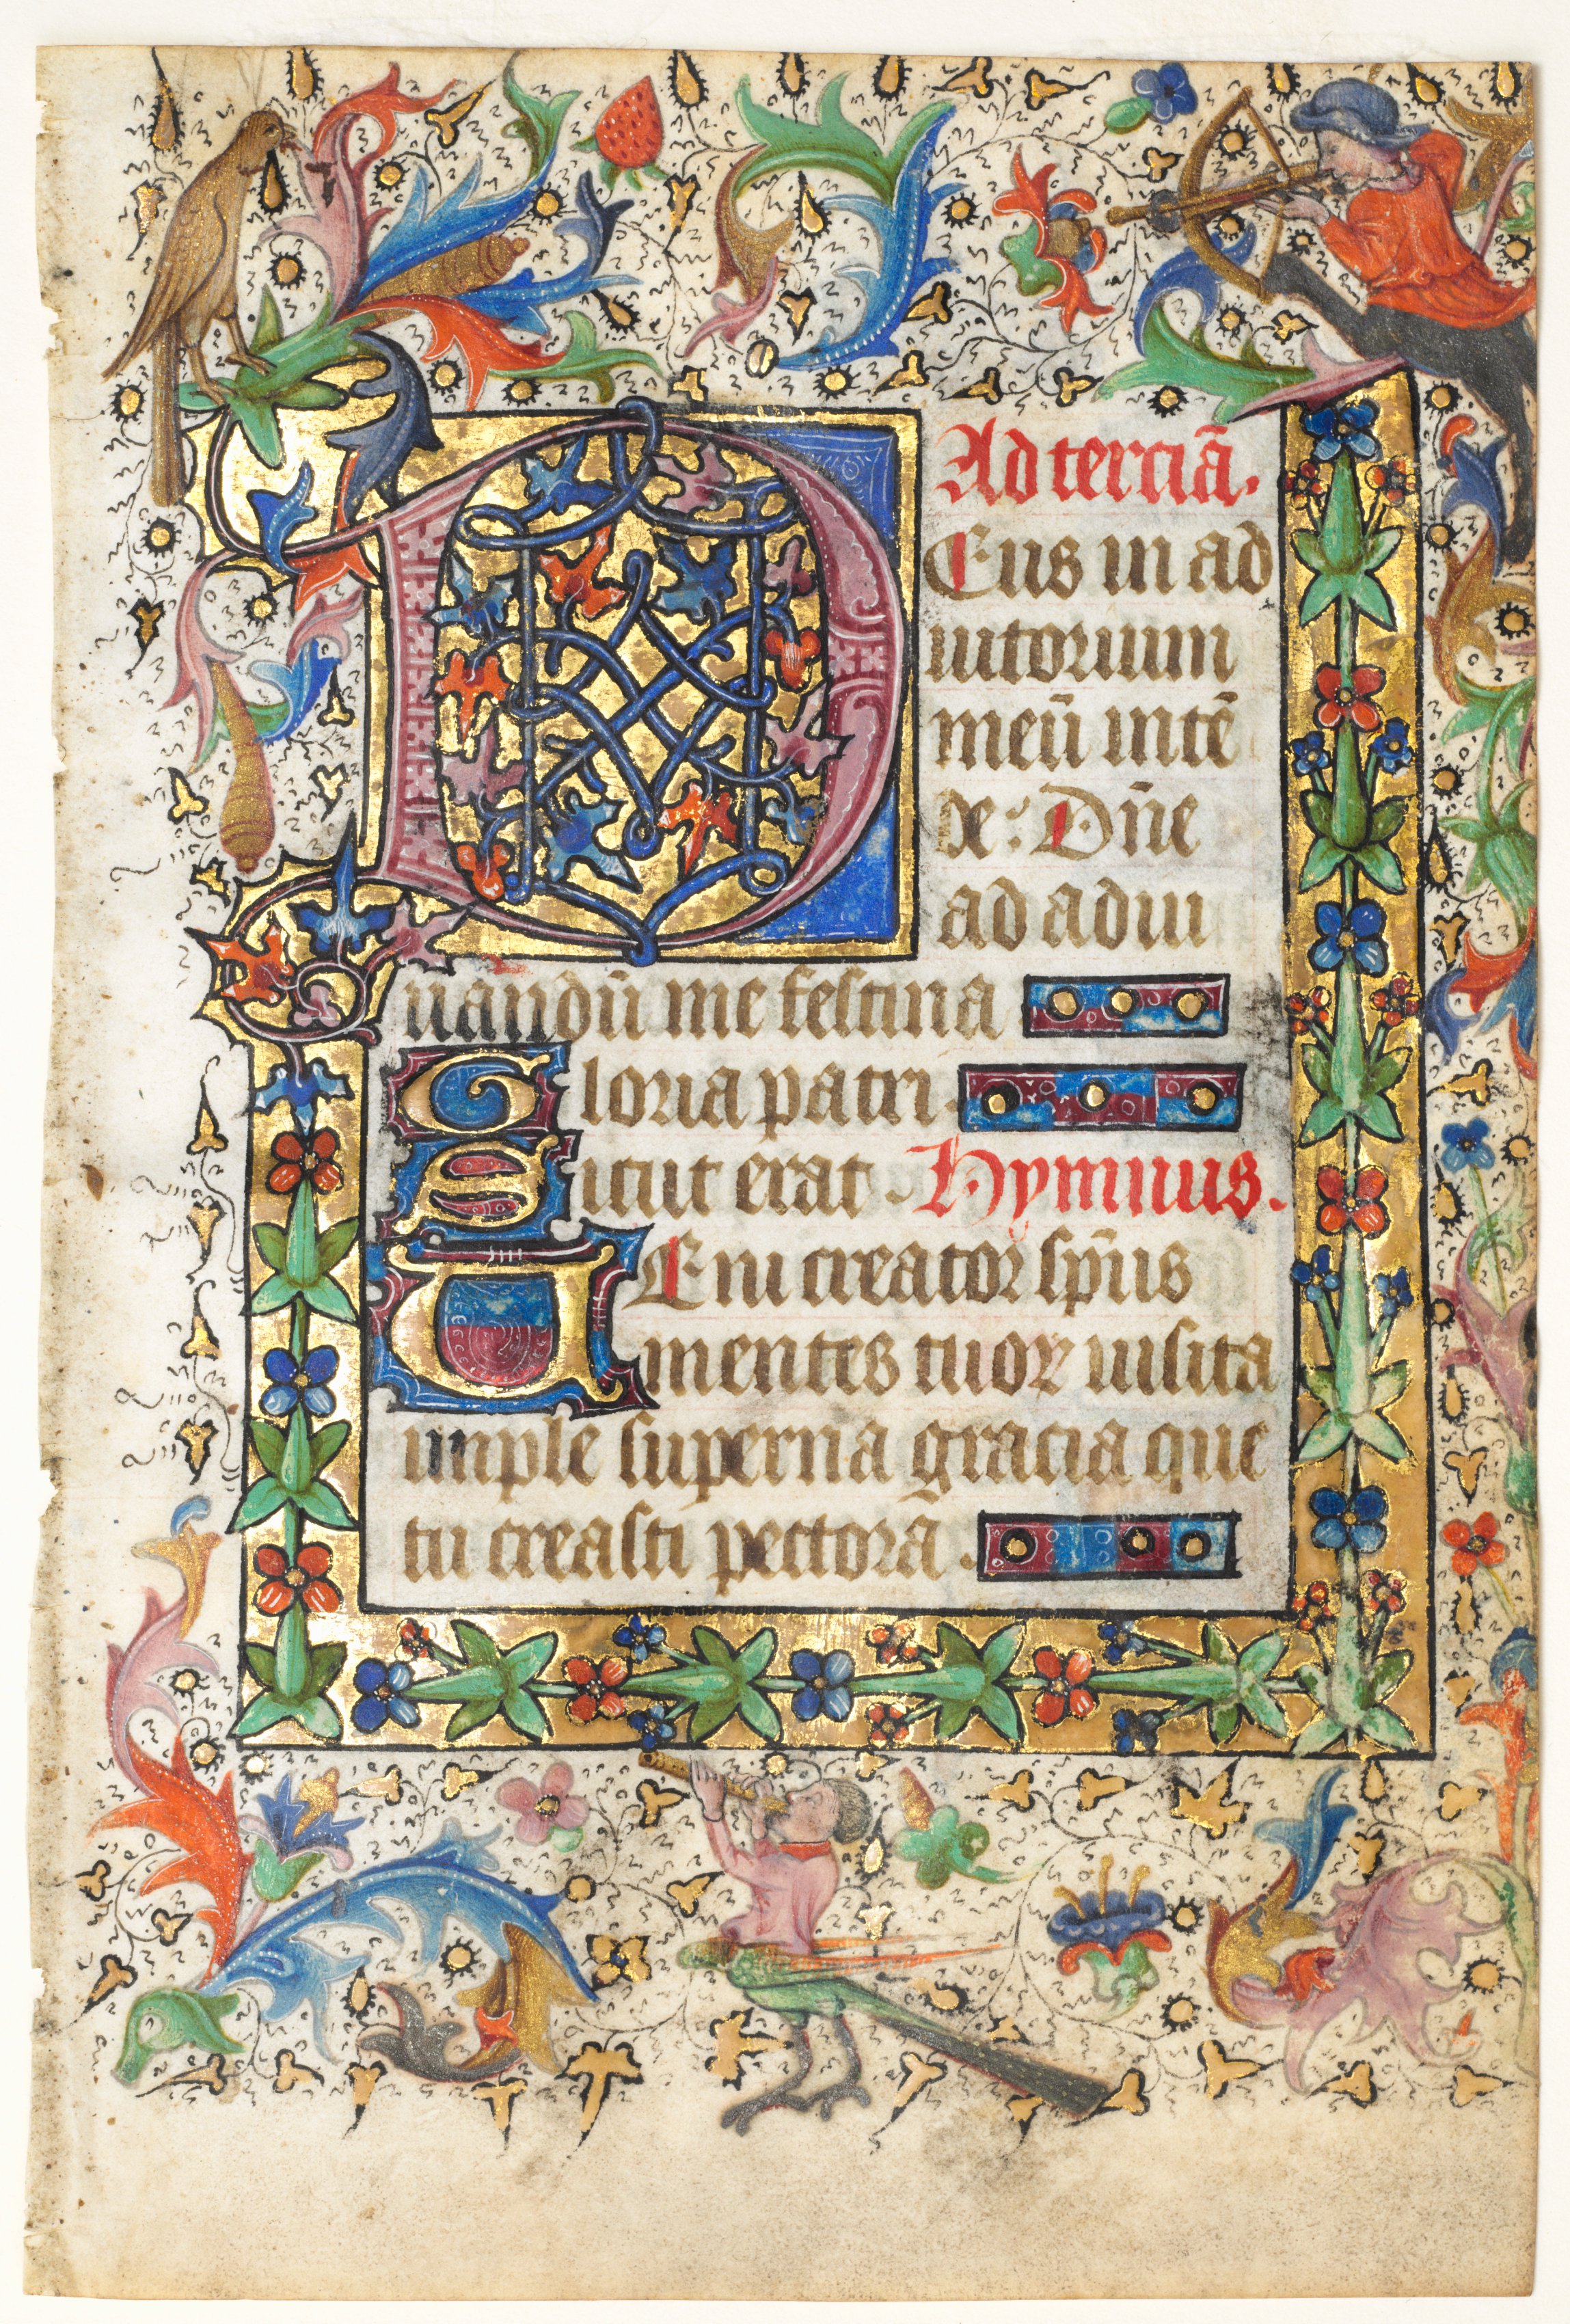 Ad terciā.
DEus in ad
iutorium
meū intē
de: Dn̄e
ad adiu
uandū me festina
Gloria patri.
Sicut erat. Hymnus.
UEni creator sp̄us
mentes tuoꝝ uisita
imple superna gracia que
tu creasti pectorā.